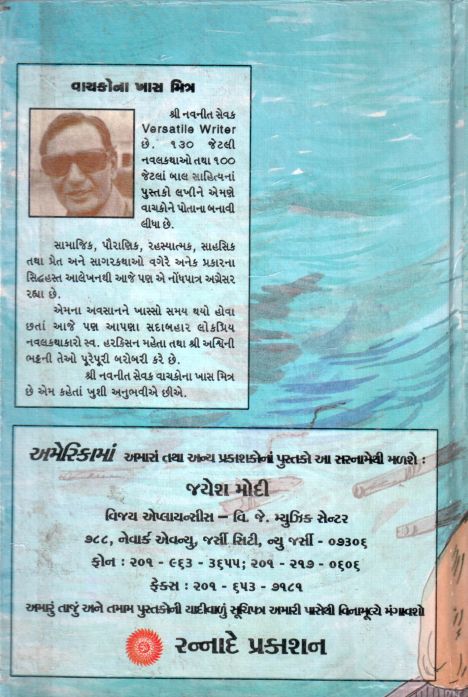 વાચકોના ખાસ મિત્ર
શ્રી નવનીત સેવક
Versatile Writer
છે. ૧૩૦ જેટલી
નવલકથાઓ તથા ૧૦૦
જેટલાં બાલ સાહિત્યનાં
પુસ્તકો લખીને એમણે
વાચકોને પોતાના બનાવી
લીધા છે.
સામાજિક, પૌરાણિક, રહસ્યાત્મક, સાહસિક
તથા પ્રેત અને સાગરકથાઓ વગેરે અનેક પ્રકારના
સિદ્ધહસ્ત આલેખનથી આજે પણ એ નોંધપાત્ર અગ્રેસર
રહ્યા છે.
એમના અવસાનને ખાસ્સો સમય થયો હોવા
છતાં આજે પણ આપણા સદાબહાર લોકપ્રિય
નવલકથાકારો સ્વ. હરકિસન મહેતા તથા શ્રી અશ્વિની
ભટ્ટની તેઓ પૂરેપૂરી બરોબરી કરે છે.
શ્રી નવનીત સેવક વાચકોના ખાસ મિત્ર
છે એમ કહેતાં ખુશી અનુભવીએ છીએ.
અમેરિકામાં અમારાં તથા અન્ય પ્રકાશકોનાં પુસ્તકો આ સરનામેથી મળશે :
જયેશ મોદી
વિજય એપ્લાયન્સીસ – વિ. જે. મ્યુઝિક સેન્ટર
૭૮૮, નેવાર્ક એવન્યુ, જર્સી સિટી, ન્યુ જર્સી - ૦૭૩૦૬
ફોન : ૨૦૧ - ૯૬૩ - ૩૬૫૫; ૨૦૧ - ૨૧૭ - ૦૬૦૬
ફેક્સ : ૨૦૧ - ૬૫૩ - ૭૧૮૧
અમારું તાજું અને તમામ પુસ્તકોની યાદીવાળું સૂચિપત્ર અમારી પાસેથી વિનામૂલ્યે મંગાવશો
રન્નાદે પ્રકાશન